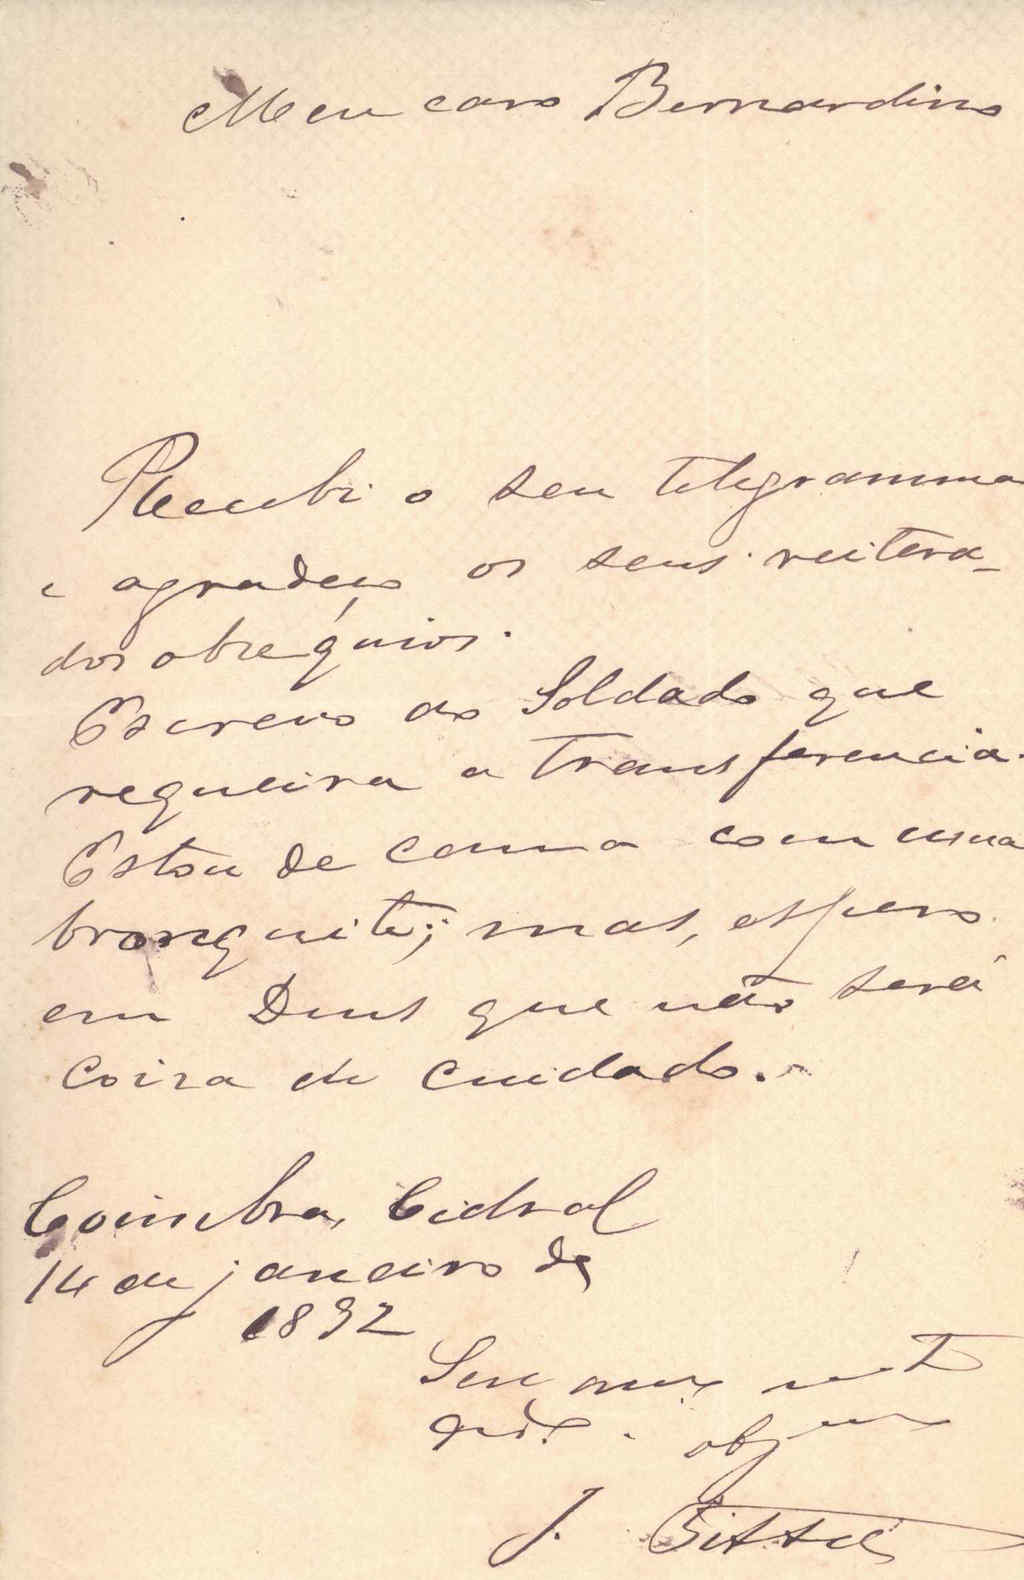 Meu caro Bernardino
Recebi o seu telegramma
e agradeço os seus reitera-
dos obsequios.
Escrevo ao Soldado que
requeira a transferencia.
Estou de cama com uma
bronquite; mas, espero
em Deus que não será
coisa de cuidado.
Coimbra, Cidral
14 de janeiro de
1892
Seu
obg
J.